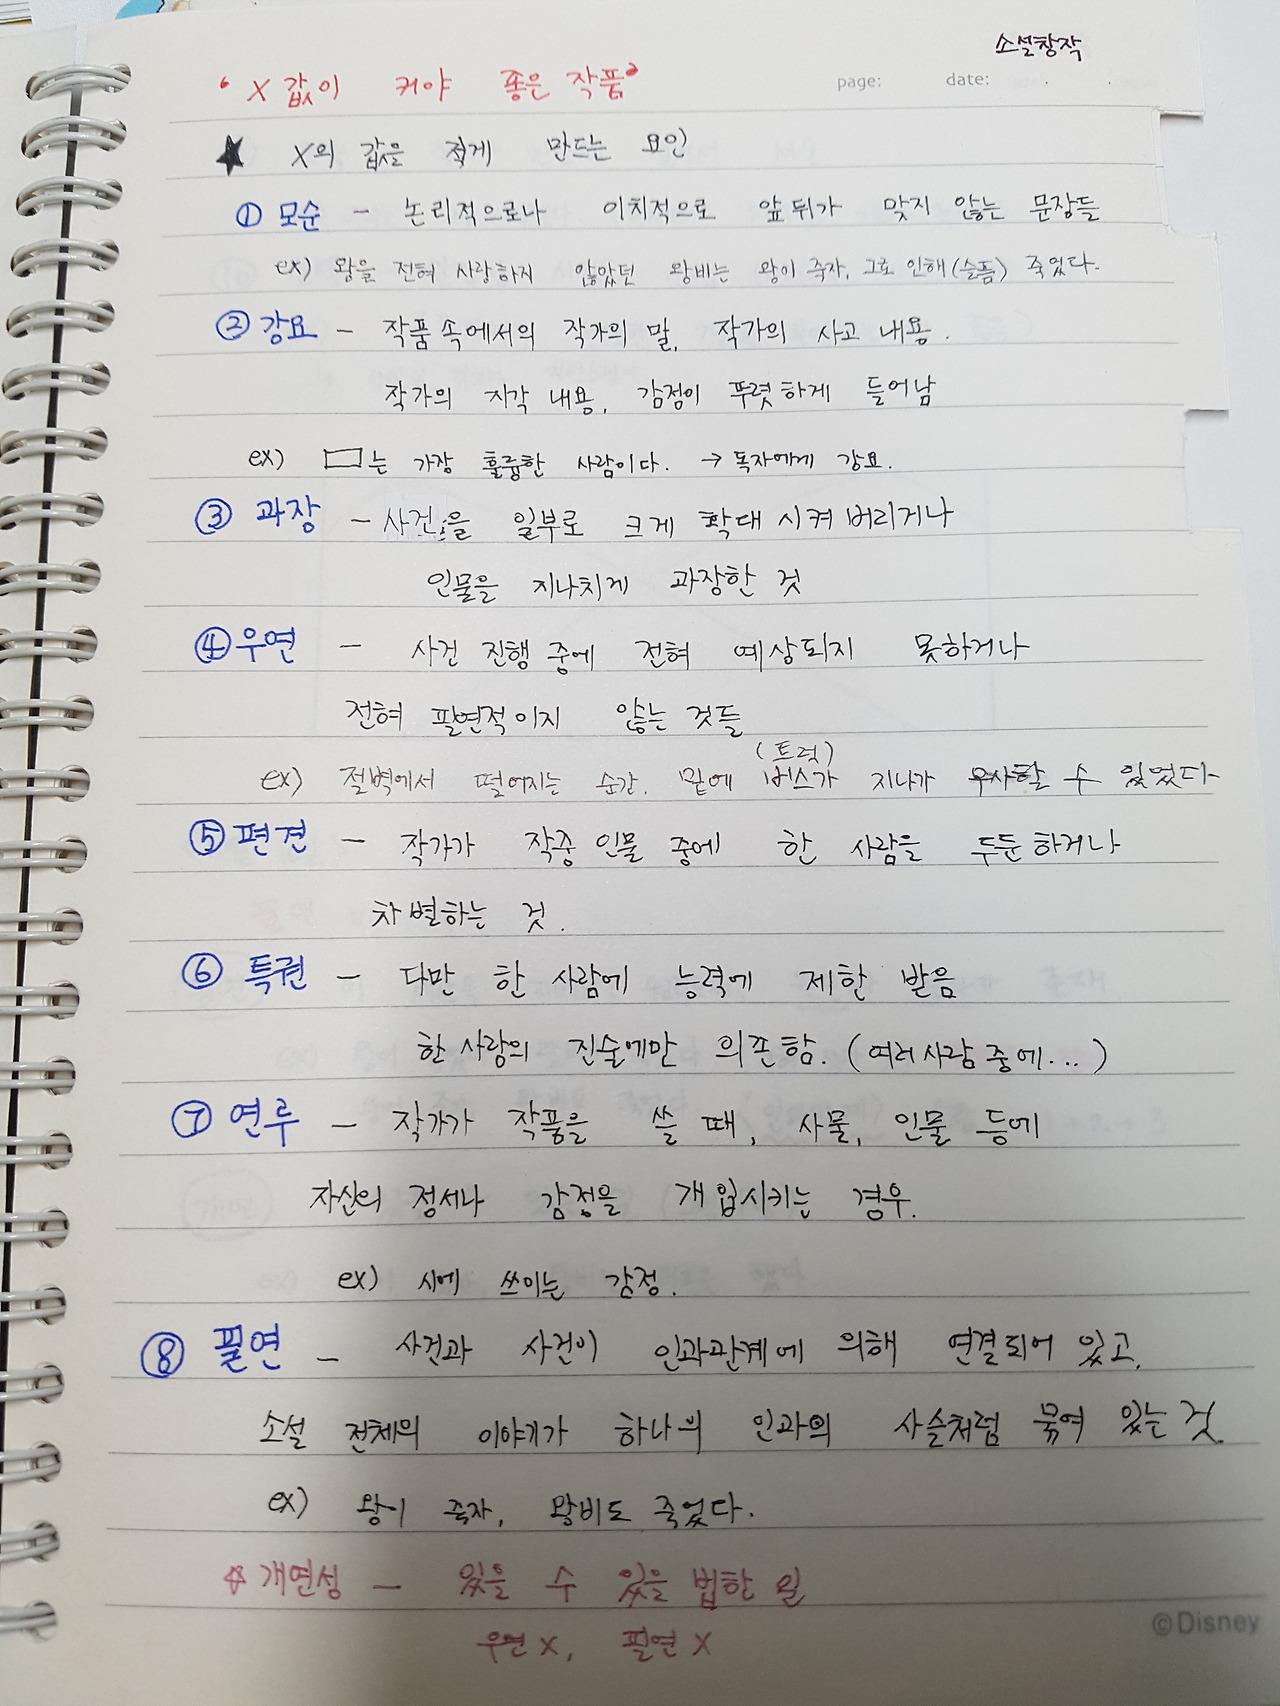 소설창작
page: date: . .
‘X 값이 커야 좋은 작품’
★ X의 값을 적게 만드는 요인
① 모순 - 논리적으로나 이치적으로 앞뒤가 맞지 않는 문장들
ex) 왕을 전혀 사랑하지 않았던 왕비는 왕이 죽자, 그로 인해(슬픔) 죽었다.
② 강요 - 작품 속에서의 작가의 말, 작가의 사고 내용.
작가의 지각 내용, 감정이 뚜렷하게 들어남
ex) □는 가장 훌륭한 사람이다. → 독자에게 강요.
③ 과장 - 사건을 일부로 크게 확대 시켜 버리거나
인물을 지나치게 과장한 것
④ 우연 - 사건 진행 중에 전혀 예상되지 못하거나
전혀 필연적이지 않는 것들
(트럭)
ex) 절벽에서 떨어지는 순간, 밑에 버스가 지나가 무사할 수 있었다
⑤ 편견 - 작가가 작중 인물 중에 한 사람을 두둔하거나
차별하는 것.
⑥ 특권 - 다만 한 사람에 능력에 제한 받음
한 사람의 진술에만 의존함. (여러 사람 중에...)
⑦ 연루 - 작가가 작품을 쓸 때, 사물, 인물 등에
자신의 정서나 감정을 개입시키는 경우.
ex) 시에 쓰이는 감정.
⑧ 필연 - 사건과 사건이 인과관계에 의해 연결되어 있고,
소설 전체의 이야기가 하나의 인과의 사슬처럼 묶여 있는 것.
ex) 왕이 죽자, 왕비도 죽었다.
☆ 개연성 - 있을 수 있을 법한 일
우연 X, 필연 X
©Disney